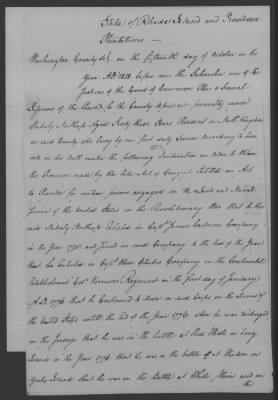 State of Rhode Island and Providence
Plantations.
Washington County Ss} on the fifteenth day of October in the
Year AD 1818 before me the Subscriber one of the
Justices of the Court of Common Pleas & General
Sessions of the for the County aforesaid personally came
Northup Aged Sixty three Years Resident in North Kingstown
in said County who being by me first duly Sworn According to law
doth on his oath make the following Declaration in order to obtain
the Provision made by the late Act of Congress Intitled an Act
to Provide for certain persons engaged in the Land and Naval
Service of the United States in the Revolutionary War that he the
said Northup Enlisted in Capt James Gardners Company
in the Year 1775 and served in said Company to the End of the Year
that he Enlisted in Capt Clarkes Company on the Continental
Establishment Col Varnums Regiment on the first day of January
A.D. 1776 that he Continued to Serve in said Corps in the Service of
the United States untill the End of the Year 1776 when he was discharged
in the Jerseys that he was in the battle, at Red Hook on Long
Island in the Year 1776 that he was in the battle at Harlem on
York Island that he was in the Battle at White Plains and in
the